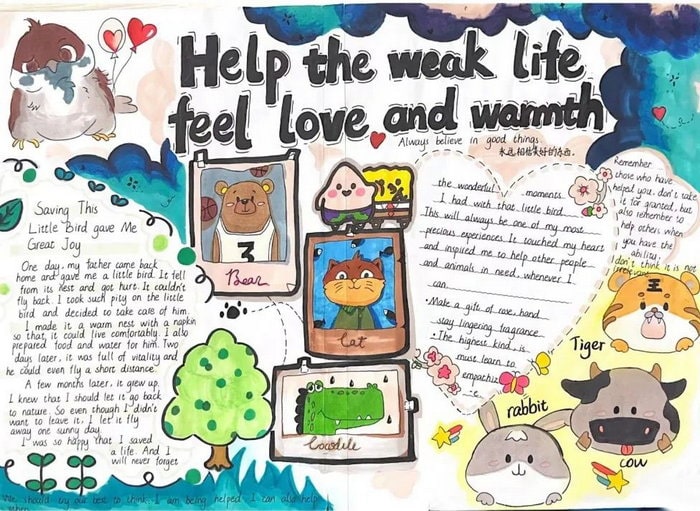 Help the weak life
feel love and warmth
Always believe in good things.
永远相信美好的东西.
Saving This
Little Bird gave Me
Great Joy
One day, my father came back
home and gave me a little bird. It fell
from its nest and got hurt. It couldn't
fly back. I took such pity on the little
bird and decided to take care of him.
I made it a warm nest with a napkin
so that, it could live comfortably. I also
prepared food and water for him. Two
days later, it was full of vitality and
he could even fly a short distance.
A few months later, it grew up.
I knew that I should let it go back
to nature. So even though I didn't
want to leave it, I let it fly
away one sunny day.
I was so happy that I saved
a life. And I
will never forget
the wonderful moments
I had with that little bird.
This will always be one of my most
precious experiences. It touched my heart
and inspired me to help other people
and animals in need, whenever I
can.
Make a gift of rose, hand
stay lingering fragrance
The highest kind is
must learn to
empathize
Remember
those who have
helped you, don't take
it for granted, but
also remember to
help others when
you have the
ability.
don't think it is not
Bear
3
Cat
Crocodile
王
Tiger
rabbit
cow
should try our best to think I am being helped I can also help